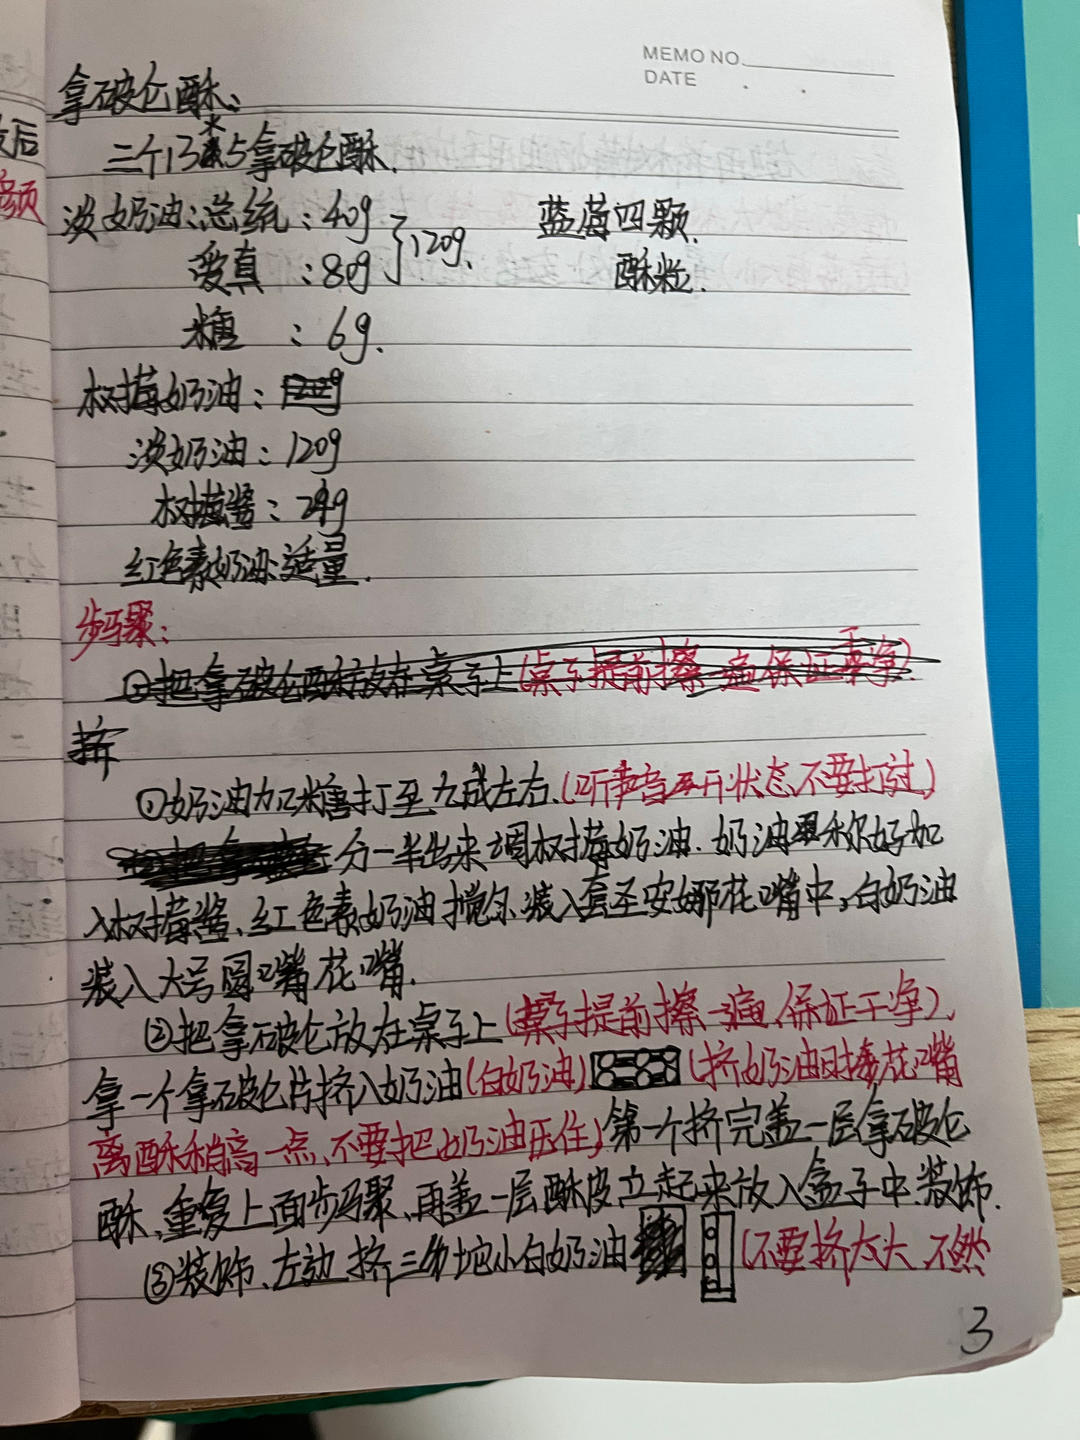 MEMO NO.
DATE
拿破仑酥：
三个13*5拿破仑酥.
淡奶油：总统：40g
爱真：80g
}120g.
蓝莓四颗.
酥粒.
糖：6g.
树莓奶油：
淡奶油：120g
树莓酱：24g
红色素奶油适量.
步骤：
①把拿破仑酥放在桌子上(桌子提前擦一遍保证干净)
挤
①奶油加糖打至九成左右.(听声音 状态,不要打过)
分一半出来调树莓奶油.奶油 称好加
入树莓酱、红色素奶油搅匀.装入套圣安娜花嘴中,白奶油
装入大号圆嘴花嘴.
②把拿破仑放在桌子上(桌子提前擦一遍,保证干净),
拿一个拿破仑片挤入奶油(白奶油)(挤奶油时接花嘴
离酥稍高一点,不要把奶油压住)第一个挤完盖一层拿破仑
酥,重复上面步骤,再盖一层酥皮立起来放入盒子中装饰.
③装饰、左边挤三 坨小白奶油(不要挤太大,不然
3
后
须